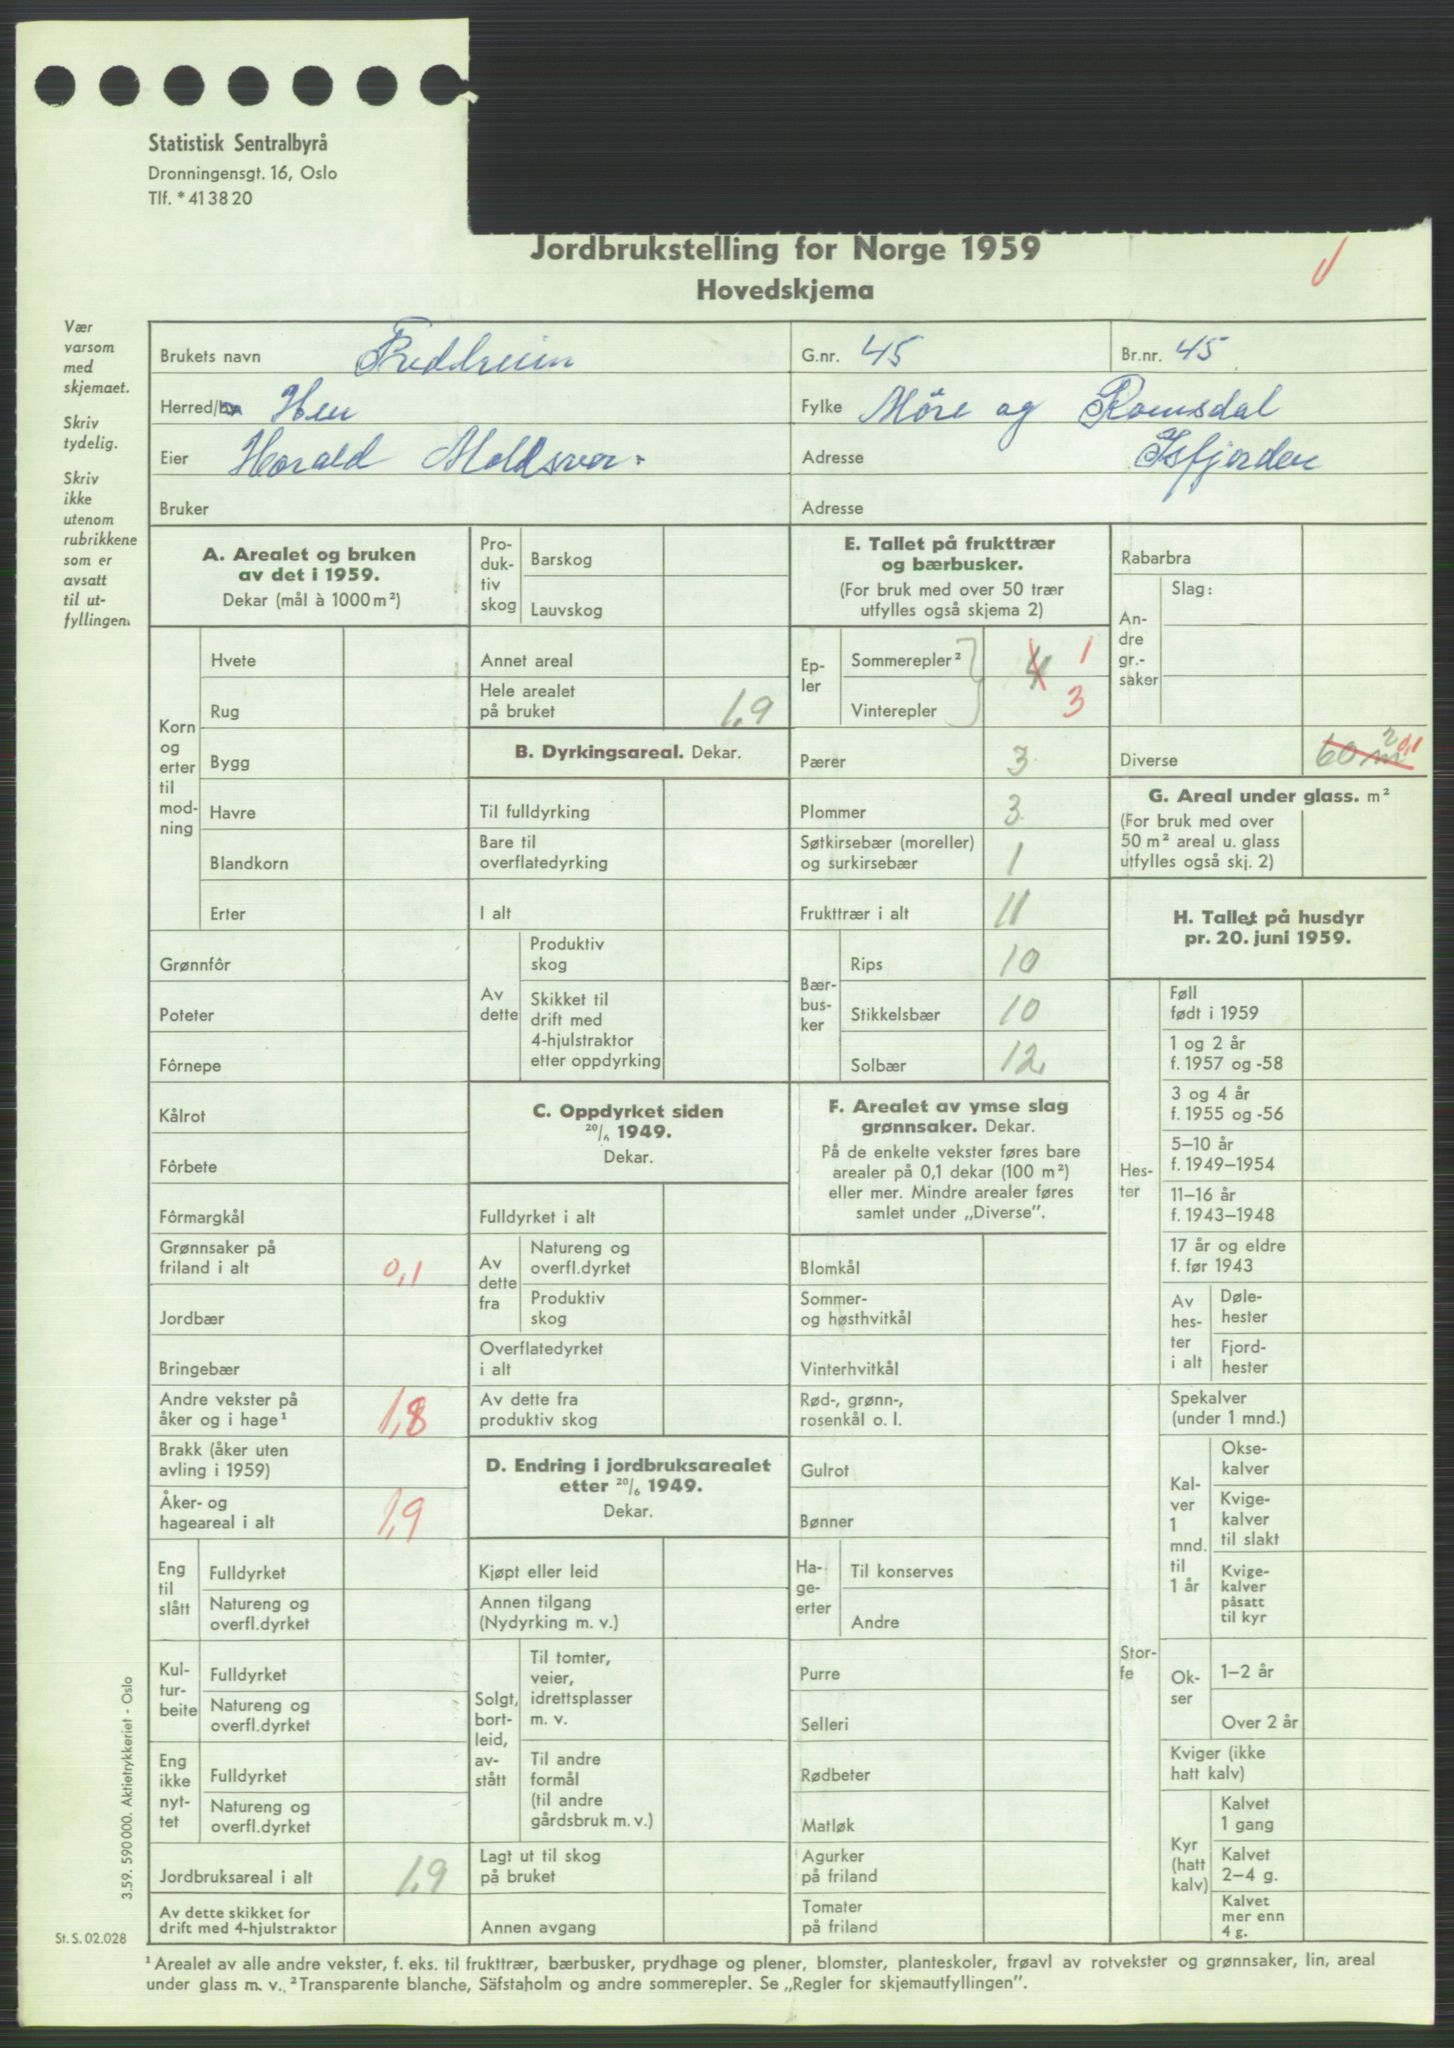 Statistisk Sentralbyrå
Dronningensgt. 16, Oslo
Tlf. * 41 38 20
Jordbrukstelling for Norge 1959
Hovedskjema
Vær
varsom
med
skjemaet.
Skriv
tydelig.
Skriv
ikke
utenom
rubrikkene
som er
avsatt
til ut-
fyllingen.
Brukets navn Fredheim G.nr. 45 Br.nr. 45
Herred/by Hen Fylke Möre og Romsdal
Eier Harald Moldsvor Adresse Isfjorden
Bruker Adresse
A. Arealet og bruken
av det i 1959.
Dekar (mål à 1000 m²)
Korn
og
erter
til
mod-
ning
Hvete
Rug
Bygg
Havre
Blandkorn
Erter
Grønnfôr
Poteter
Fôrnepe
Kålrot
Fôrbete
Fôrmargkål
Grønnsaker på
friland i alt 0,1
Jordbær
Bringebær
Andre vekster på
åker og i hage¹ 1,8
Brakk (åker uten
avling i 1959)
Åker- og
hageareal i alt 1,9
Eng
til
slått
Fulldyrket
Natureng og
overfl.dyrket
Kul-
tur-
beite
Fulldyrket
Natureng og
overfl.dyrket
Eng
ikke
nyt-
tet
Fulldyrket
Natureng og
overfl.dyrket
Jordbruksareal i alt 1,9
Av dette skikket for
drift med 4-hjulstraktor
Pro-
duk-
tiv
skog
Barskog
Lauvskog
Annet areal
Hele arealet
på bruket 1,9
B. Dyrkingsareal. Dekar.
Til fulldyrking
Bare til
overflatedyrking
I alt
Av
dette
Produktiv
skog
Skikket til
drift med
4-hjulstraktor
etter oppdyrking
C. Oppdyrket siden
20/6 1949.
Dekar.
Fulldyrket i alt
Av
dette
fra
Natureng og
overfl.dyrket
Produktiv
skog
Overflatedyrket
i alt
Av dette fra
produktiv skog
D. Endring i jordbruksarealet
etter 20/6 1949.
Dekar.
Kjøpt eller leid
Annen tilgang
(Nydyrking m. v.)
Solgt,
bort-
leid,
av-
stått
Til tomter,
veier,
idrettsplasser
m. v.
Til andre
formål
(til andre
gårdsbruk m. v.)
Lagt ut til skog
på bruket
Annen avgang
E. Tallet på frukttrær
og bærbusker.
(For bruk med over 50 trær
utfylles også skjema 2)
Ep-
ler
Sommerepler² 4 1
Vinterepler 3
Pærer 3
Plommer 3
Søtkirsebær (moreller)
og surkirsebær 1
Frukttrær i alt 11
Bær-
bus-
ker
Rips 10
Stikkelsbær 10
Solbær 12
F. Arealet av ymse slag
grønnsaker. Dekar.
På de enkelte vekster føres bare
arealer på 0,1 dekar (100 m²)
eller mer. Mindre arealer føres
samlet under „Diverse”.
Blomkål
Sommer-
og høsthvitkål
Vinterhvitkål
Rød-, grønn-,
rosenkål o. l.
Gulrot
Bønner
Ha-
ge-
erter
Til konserves
Andre
Purre
Selleri
Rødbeter
Matløk
Agurker
på friland
Tomater
på friland
Rabarbra
An-
dre
gr.-
saker
Slag:
Diverse 60 m² 0,1
G. Areal under glass. m²
(For bruk med over
50 m² areal u. glass
utfylles også skj. 2)
H. Tallet på husdyr
pr. 20. juni 1959.
Hes-
ter
Føll
født i 1959
1 og 2 år
f. 1957 og -58
3 og 4 år
f. 1955 og -56
5–10 år
f. 1949–1954
11–16 år
f. 1943–1948
17 år og eldre
f. før 1943
Av
hes-
ter
i alt
Døle-
hester
Fjord-
hester
Stor-
fe
Spekalver
(under 1 mnd.)
Kal-
ver
1
mnd.
til
1 år
Okse-
kalver
Kvige-
kalver
til slakt
Kvige-
kalver
påsatt
til kyr
Ok-
ser
1–2 år
Over 2 år
Kviger (ikke
hatt kalv)
Kyr
(hatt
kalv)
Kalvet
1 gang
Kalvet
2–4 g.
Kalvet
mer enn
4 g.
3.59. 590 000. Aktietrykkeriet - Oslo
St. S. 02.028
¹ Arealet av alle andre vekster, f. eks. til frukttrær, bærbusker, prydhage og plener, blomster, planteskoler, frøavl av rotvekster og grønnsaker, lin, areal
under glass m. v. ² Transparente blanche, Säfstaholm og andre sommerepler. Se „Regler for skjemautfyllingen”.